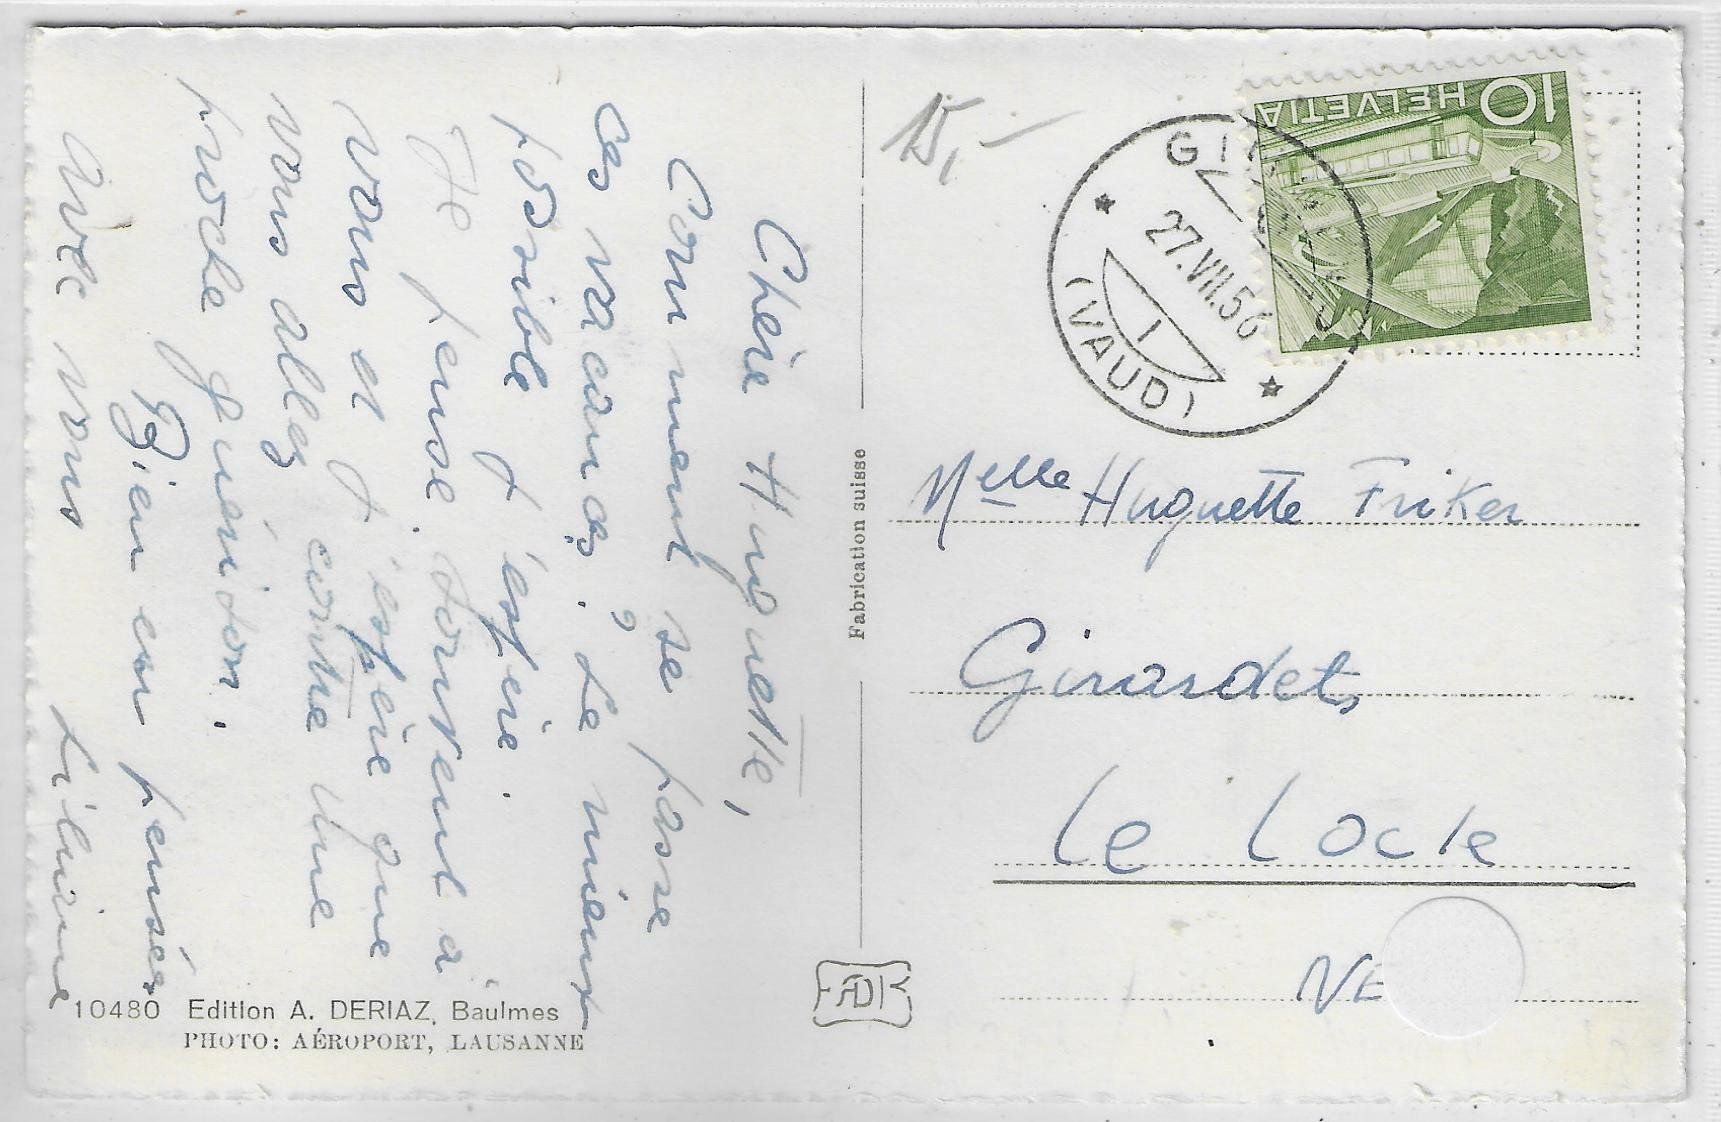 Chère Huguette,
Comment se passe
ces vacances? Le mieux
possible j'espère.
Je pense souvent à
vous et j'espère que
vous allez contre une
proche guérison.
Bien en pensée
avec vous
Liliane
10480 Edition A. DERIAZ, Baulmes
PHOTO: AÉROPORT, LAUSANNE
Fabrication suisse
15.-
10 HELVETIA
27.VII.56
1
(VAUD)
Melle Huguette Friker
Girardet,
Le Locle
NE